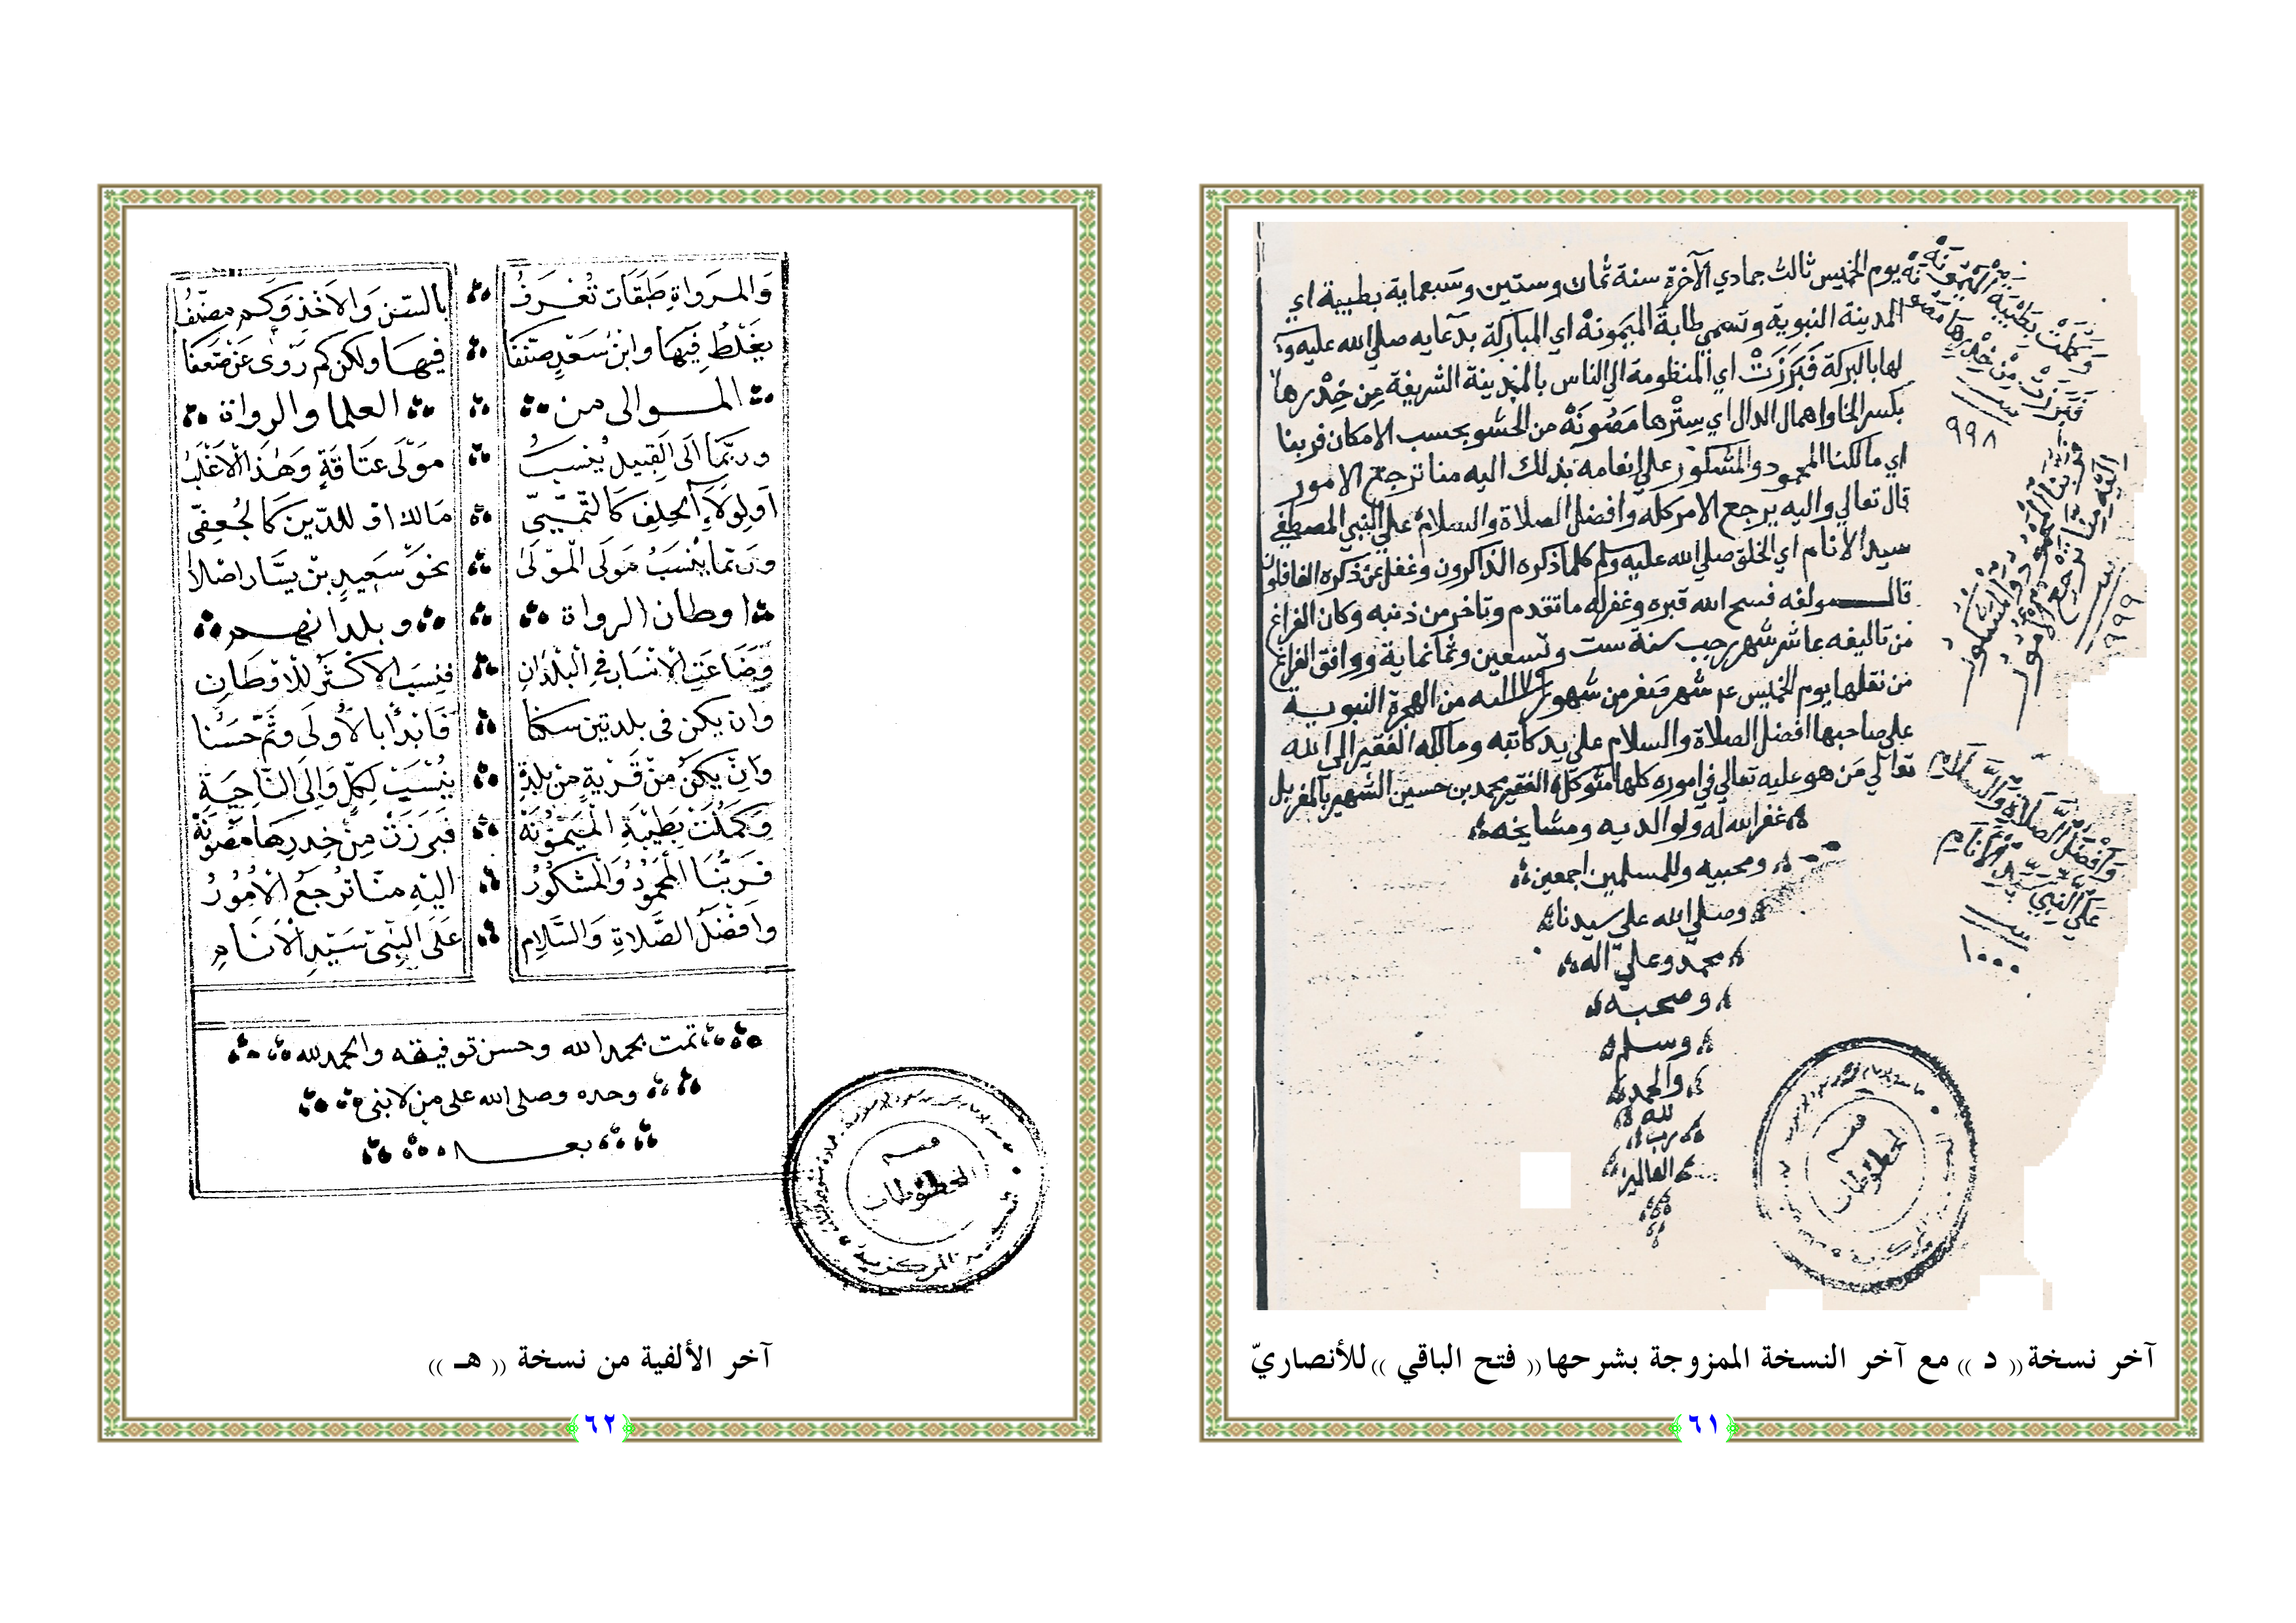 يوم الخميس ثالث جمادي الآخرة سنة ثمان وستين وسبعماية بطيبة اي
المدينة النبوية وتسمي طابة الميمونة اي المباركة بدعايه صلي الله عليه و
لها بالبركة فبرزت اي المنظومة الي الناس بالمدينة الشريفة من خدرها
بكسر الخا واهمال الدال اي سترها مصونة من الحشو بحسب الامكان فربنا
اي مالكنا المحمود والمشكور علي انعامه بذلك اليه منا ترجع الامور
قال تعالي واليه يرجع الامر كله وافضل الصلاة والسلام علي النبي المصطفي
سيد الانام اي الخلق صلي الله عليه وسلم كلما ذكره الذاكرون وغفل عن ذكره الغافلون
قال مولفه فسح الله قبره وغفر له ما تقدم وتاخر من ذنبه وكان الفراغ
من تاليفه عاشر شهر رجب سنة ست وتسعين وثمانماية ووافق الفراغ
من نقلها يوم الخميس شهر صفر من شهور من الهجرة النبوية
علي صاحبها افضل الصلاة والسلام علي يد كاتبه ومالكه الفقير الي الله
تعالي من هو عليه تعالي في اموره كلها متوكل الفقير محمد بن حسين الشهير
غفر الله له ولوالديه ومشايخه
ومحبيه وللمسلمين اجمعين
وصلي الله علي سيدنا
محمد وعلي آله
وصحبه
وسلم
والحمد
لله
رب
العالمين
وكملت بطيبة الميمونة
فبرزت من خدرها مصونة
٩٩٨
فربنا المحمود والمشكور
اليه منا ترجع الامور
٩٩٩
وأفضل الصلاة والسلام
علي النبي سيد الانام
١٠٠٠
قسم
المخطوطات
آخر نسخة (( د )) مع آخر النسخة الممزوجة بشرحها (( فتح الباقي )) للأنصاريّ
٦١
وللرواة طبقات تعرف بالسن والاخذ وكم مصنف
يغلط فيها وابن سعد صنفا فيها ولكن كم روى عن ضعفا
الموالى من العلما والرواة
وربما الى القبيل ينسب مولى عتاقة وهذا الاغلب
او لولاء الحلف كالتيمى مالك او للدين كالجعفى
وربما ينسب مولى المولى نحو سعيد بن يسار اصلا
اوطان الرواة وبلدانهم
وضاعت الانساب في البلدان فنسب الاكثر للاوطان
وان يكن في بلدتين سكنا فابدأ بالأولى وثم حسنا
وان يكن من قرية من بلدة ينسب لكل والى الناحية
وكملت بطيبة الميمونة فبرزت من خدرها مصونة
فربنا المحمود والمشكور اليه منا ترجع الأمور
وافضل الصلاة والسلام على النبى سيد الانام
تمت بحمد الله وحسن توفيقه والحمد لله
وحده وصلى الله على من لا نبى
بعده
قسم
المخطوطات
المركزية
آخر الألفية من نسخة (( هـ ))
٦٢